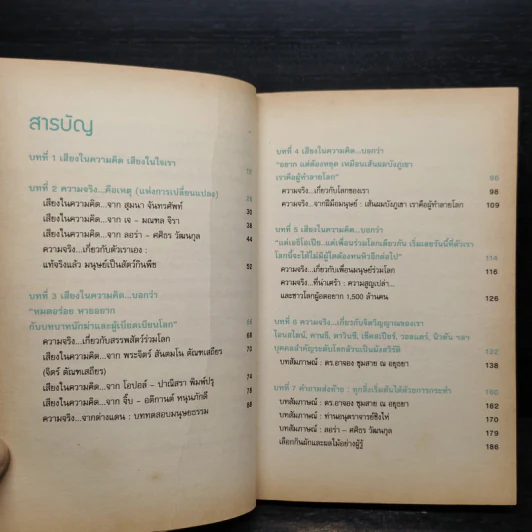 สารบัญ
บทที่ 1 เสียงในความคิด เสียงในใจเรา
บทที่ 2 ความจริง...คือเหตุ (แห่งการเปลี่ยนแปลง)
เสียงในความคิด...จาก สุมนา จันทรศัพท์ 30
เสียงในความคิด...จาก เจ - มณฑล จิรา 38
เสียงในความคิด...จาก ลอร่า - ศศิธร วัฒนกุล 44
ความจริง...เกี่ยวกับตัวเราเอง :
แท้จริงแล้ว มนุษย์เป็นสัตว์กินพืช 52
บทที่ 3 เสียงในความคิด...บอกว่า
"หมดอร่อย หายอยาก
กับบทบาทนักฆ่าและผู้เบียดเบียนโลก"
ความจริง...เกี่ยวกับสรรพสัตว์ร่วมโลก 68
เสียงในความคิด...จาก พระจิตร์ ตัณฑเสถียร
(จิตร์ ตัณฑเสถียร) 74
เสียงในความคิด...จาก โอปอล์ - ปาณิสรา พิมพ์ปรุ 78
เสียงในความคิด...จาก จิ๊บ - อติกานต์ หนุนภักดี
ความจริง...จากต่างแดน : บททดสอบมนุษยธรรม
บทที่ 4 เสียงในความคิด...บอกว่า
"อยาก แต่ต้องหยุด เหมือนเส้นผมบังภูเขา
เราคือผู้ทำลายโลก" 86
ความจริง...เกี่ยวกับโลกของเรา 98
ความจริง...จากฝีมือมนุษย์ : เส้นผมบังภูเขา เราคือผู้ทำลายโลก 109
บทที่ 5 เสียงในความคิด...บอกว่า
"แด่เอธิโอเปีย...แด่เพื่อนร่วมโลกเดียวกัน เริ่มเลยวันนี้ที่ตัวเรา
โลกนี้จะได้ไม่มีผู้ใดต้องทนหิวอีกต่อไป" 114
ความจริง...เกี่ยวกับเพื่อนมนุษย์ร่วมโลก 116
ความจริง...ที่น่าเศร้า : ความสูญเปล่า...
และชาวโลกผู้อดอยาก 1,500 ล้านคน 126
บทที่ 6 ความจริง...เกี่ยวกับจิตวิญญาณของเรา
ไอนสไตน์, คานธี, ดาวินชี, เช็คสเปียร์, วอลแตร์, นิวตัน ฯลฯ
บุคคลสำคัญระดับโลกล้วนเป็นมังสวิรัติ 132
บทสัมภาษณ์ : ดร.อาจอง ชุมสาย ณ อยุธยา 138
บทที่ 7 คำถามส่งท้าย : ทุกสิ่งเริ่มต้นได้ด้วยการกระทำ 160
บทสัมภาษณ์ : ดร.อาจอง ชุมสาย ณ อยุธยา 162
บทสัมภาษณ์ : ท่านอนุตราจารย์ชิงไห่ 170
บทสัมภาษณ์ : ลอร่า - ศศิธร วัฒนกุล 179
เลือกกินผักและผลไม้อย่างผู้รู้ 186